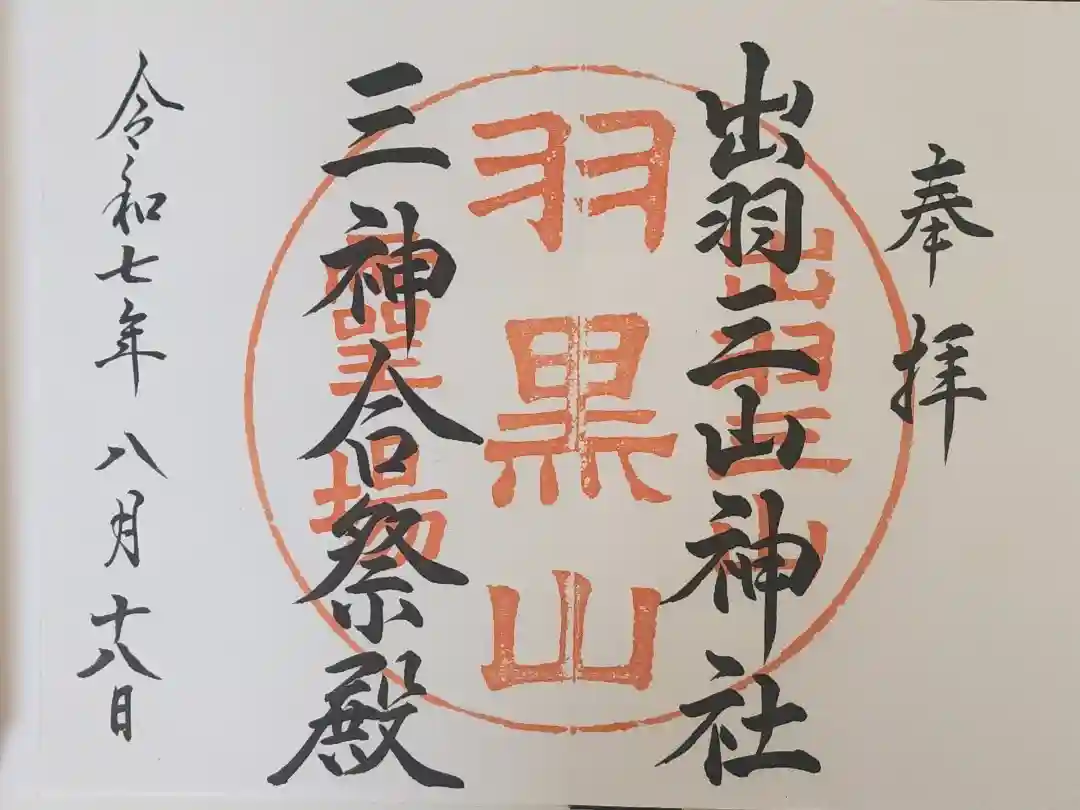 奉拝
出羽三山神社
出羽三山
羽黒山
霊場
三神合祭殿
令和七年 八月十八日